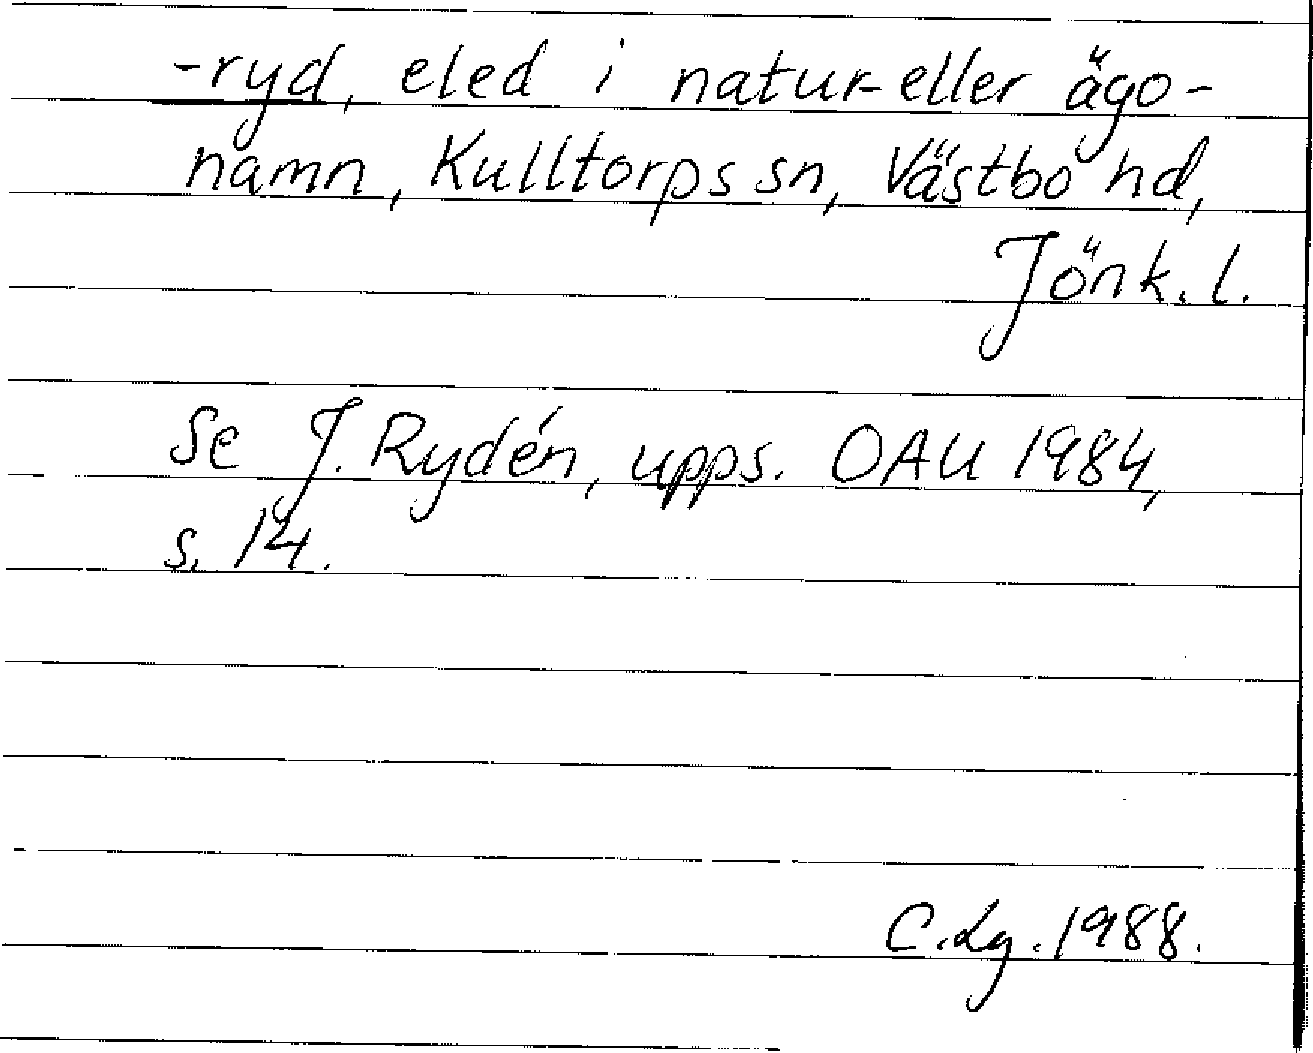 -ryd, eled i natur- eller ägo-
namn, Kulltorps sn, Västbo hd,
Jönk. l.
Se J. Rydén, upps. OAU 1984,
s. 14.
C. Lg. 1988.